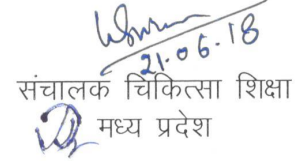 21.06.18
संचालक चिकित्सा शिक्षा
मध्य प्रदेश